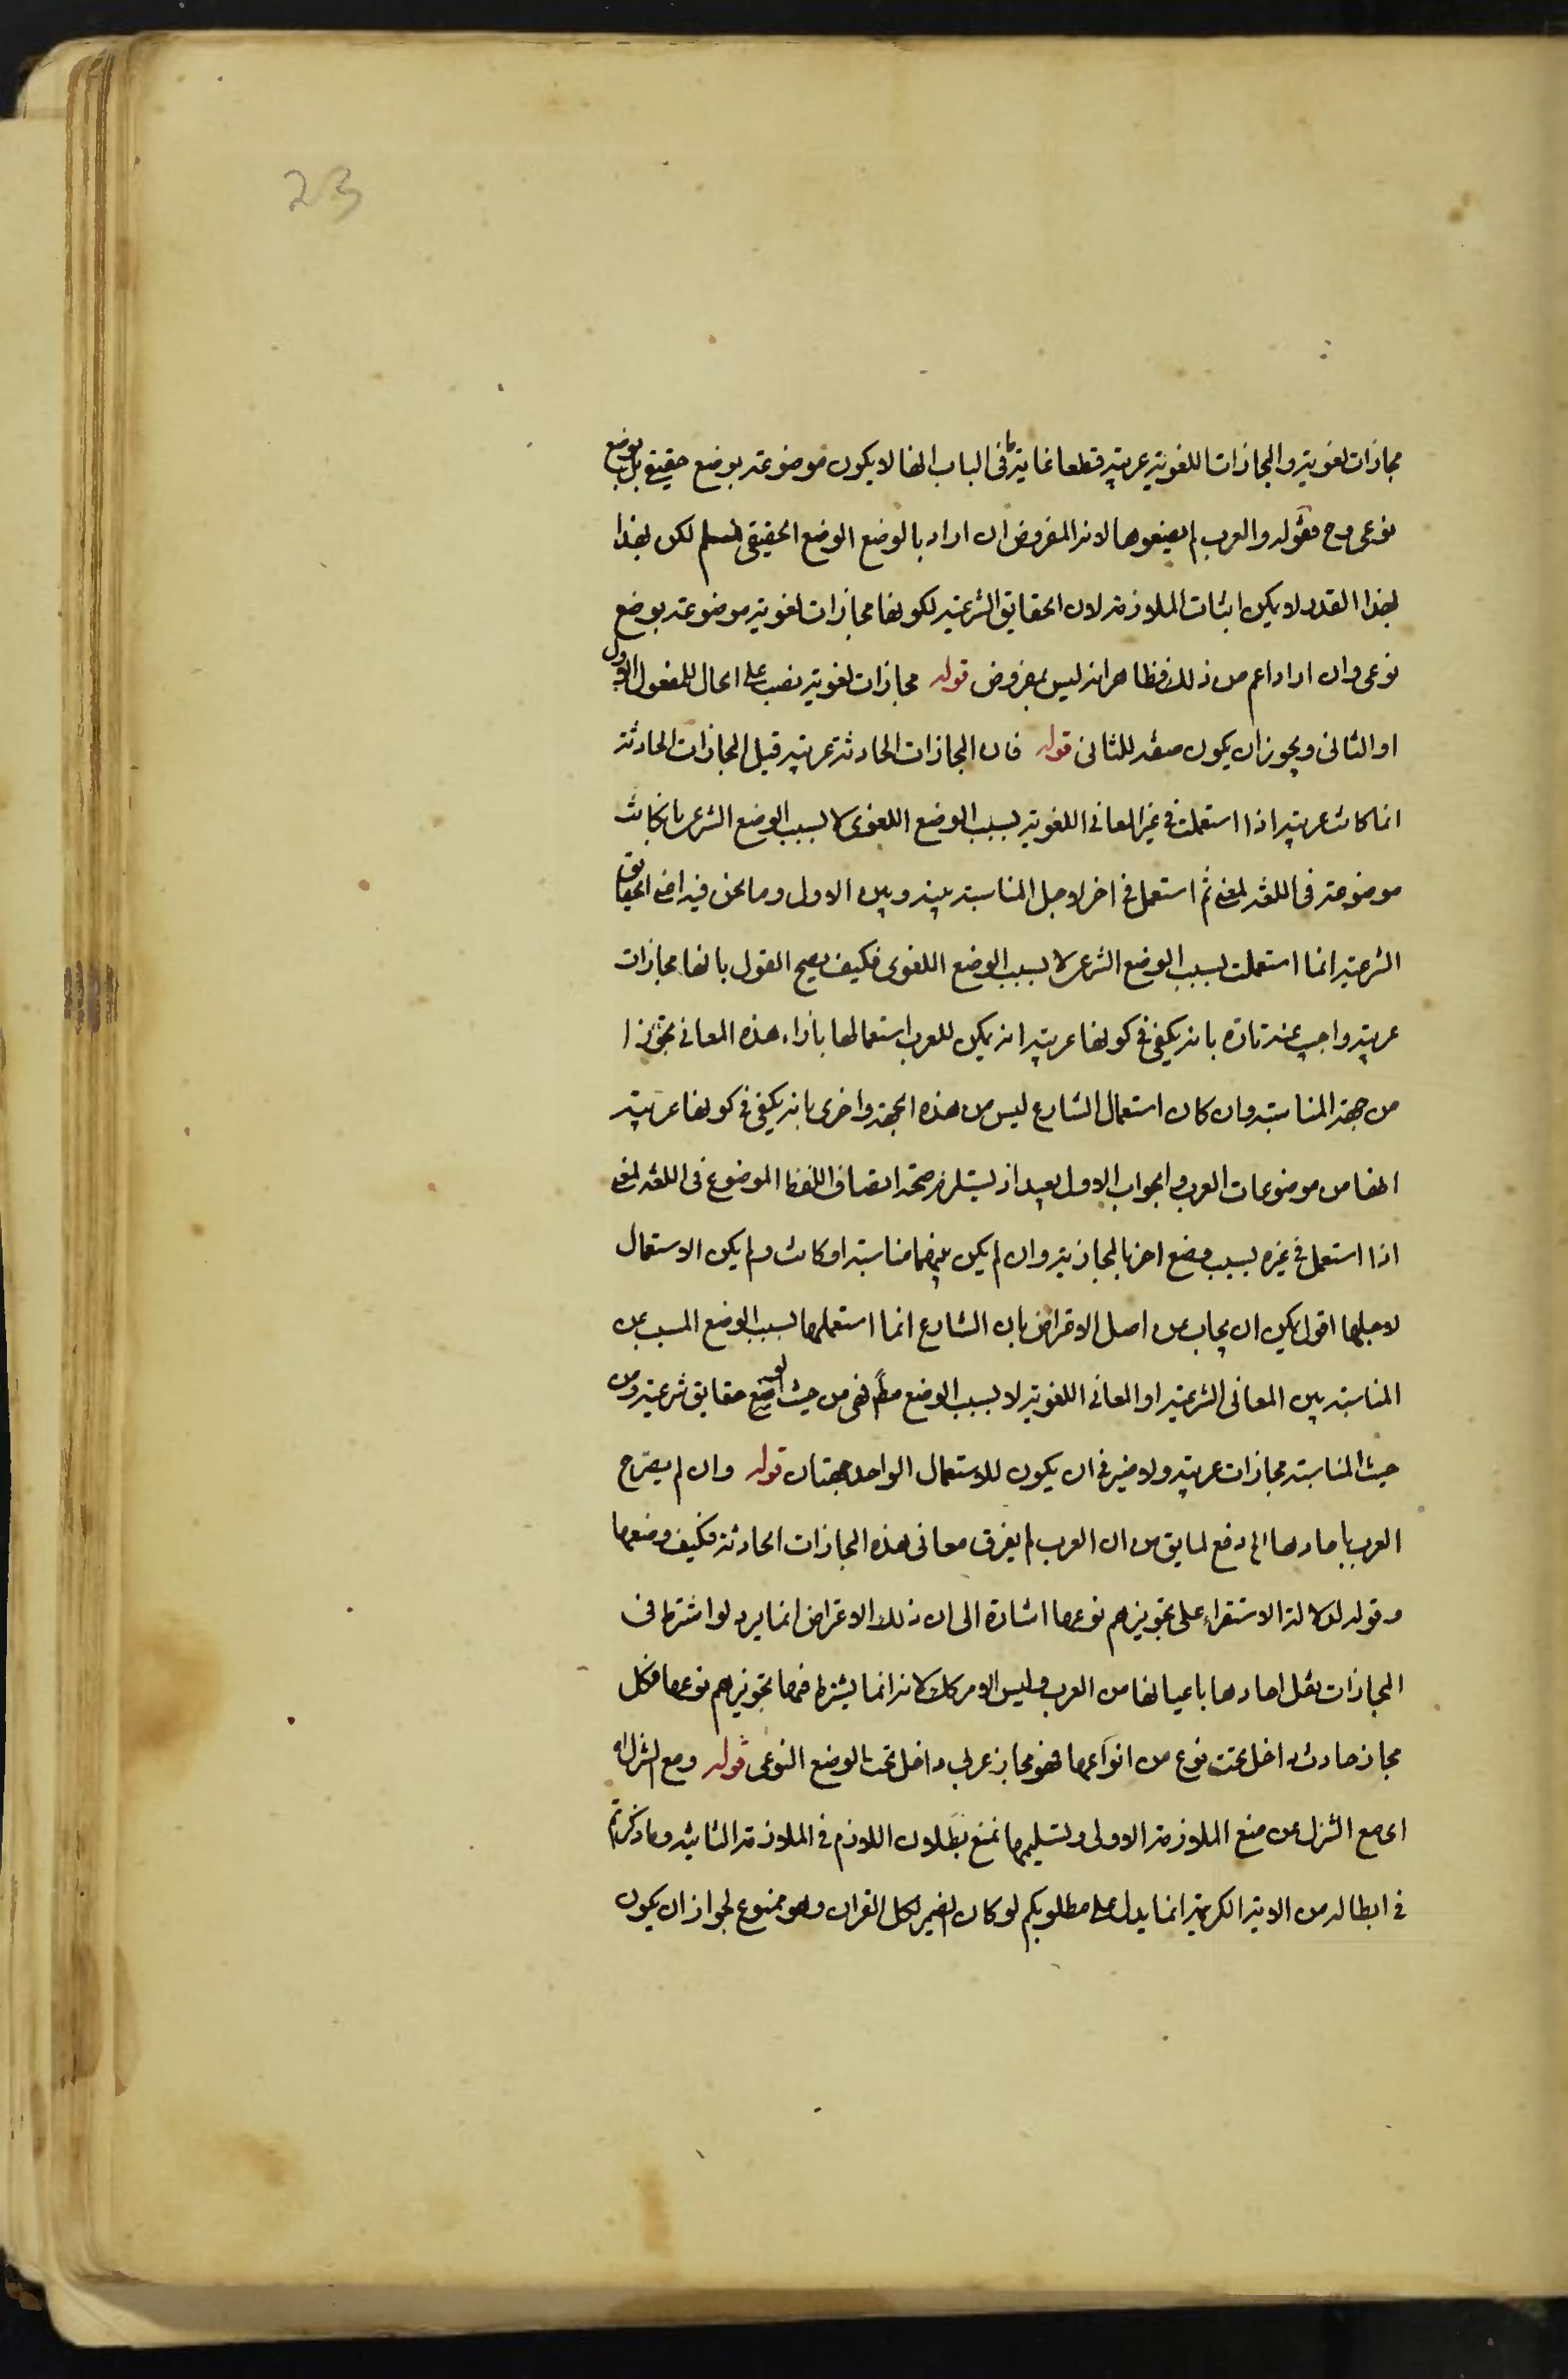 23
مجازات لغوية والمجازات اللغوية عربية قطعا غاية ما فى الباب انها لا يكون موضوعة بوضع حقيقى بل بوضع
نوعى وح فقوله والعرب لم يضعوها لانه المفروض ان اراد بالوضع الوضع الحقيقى فمسلم لكن بهذا
بهذا القدر لا يمكن اثبات الملازمة لان الحقايق الشرعية لكونها مجازات لغوية موضوعة بوضع
نوعى وان اراد اعم من ذلك فظاهر انه ليس بمفروض قوله مجازات لغوية نصب على الحال للمفعول الاول
او الثانى ويجوز ان يكون صفة للثانى قوله فان المجازات الحادثة عربية قيل المجازات الحادثة
انما كانت عربية اذا استعملت فى غير المعانى اللغوية بسبب الوضع اللغوى لا بسبب الوضع الشرعى بان كانت
موضوعة فى اللغة لمعنى ثم استعمل فى اخر لاجل المناسبة بينه وبين الاول وما نحن فيه اعنى الحقايق
الشرعية انما استعملت بسبب الوضع الشرعى لا بسبب الوضع اللغوى فكيف يصح القول بانها مجازات
عربية واجيب عنه تارة بانه يكفى فى كونها عربية انه يمكن للعرب استعمالها بازاء هذه المعانى تجوزا
من جهة المناسبة وان كان استعمال الشارع ليس من هذه الجهة واخرى بانه يكفى فى كونها عربية
انها من موضوعات العرب والجواب الاول بعيد اذ يستلزم صحة اتصاف اللفظ الموضوع فى اللغة لمعنى
اذا استعمل فى غيره بسبب وضع اخر بالمجازية وان لم يكن بينهما مناسبة او كانت ولم يكن الاستعمال
لاجلها اقول يمكن ان يجاب عن اصل الاعتراض بان الشارع انما استعملها بسبب الوضع المسبب عن
المناسبة بين المعانى الشرعية او المعانى اللغوية لا بسبب الوضع مطلقا فهى من حيث الوضع حقايق شرعية ومن
حيث المناسبة مجازات عربية ولا ضير فى ان يكون للاستعمال الواحد جهتان قوله وان لم يصرح
العرب باحادها الخ دفع لما يق من ان العرب لم يعرف معانى هذه المجازات الحادثة فكيف وضعها
وقوله لدلالة الاستقراء على تجويزهم نوعها اشارة الى ان ذلك الاعتراض انما يرد لو اشترط فى
المجازات نقل احادها باعيانها من العرب وليس الامر كك لانه انما يشترط فيها تجويزهم نوعها فكل
مجاز حادث داخل تحت نوع من انواعها فهو مجاز عربى داخل تحت الوضع النوعى قوله ومع التنزل
اى مع التنزل عن منع الملازمة الاولى وتسليمها نمنع بطلان اللازم فى الملازمة الثانية وما ذكرتم
فى ابطاله من الاية الكريمة انما يدل على مطلوبكم لو كان الضمير لكل القران وهو ممنوع لجواز ان يكون